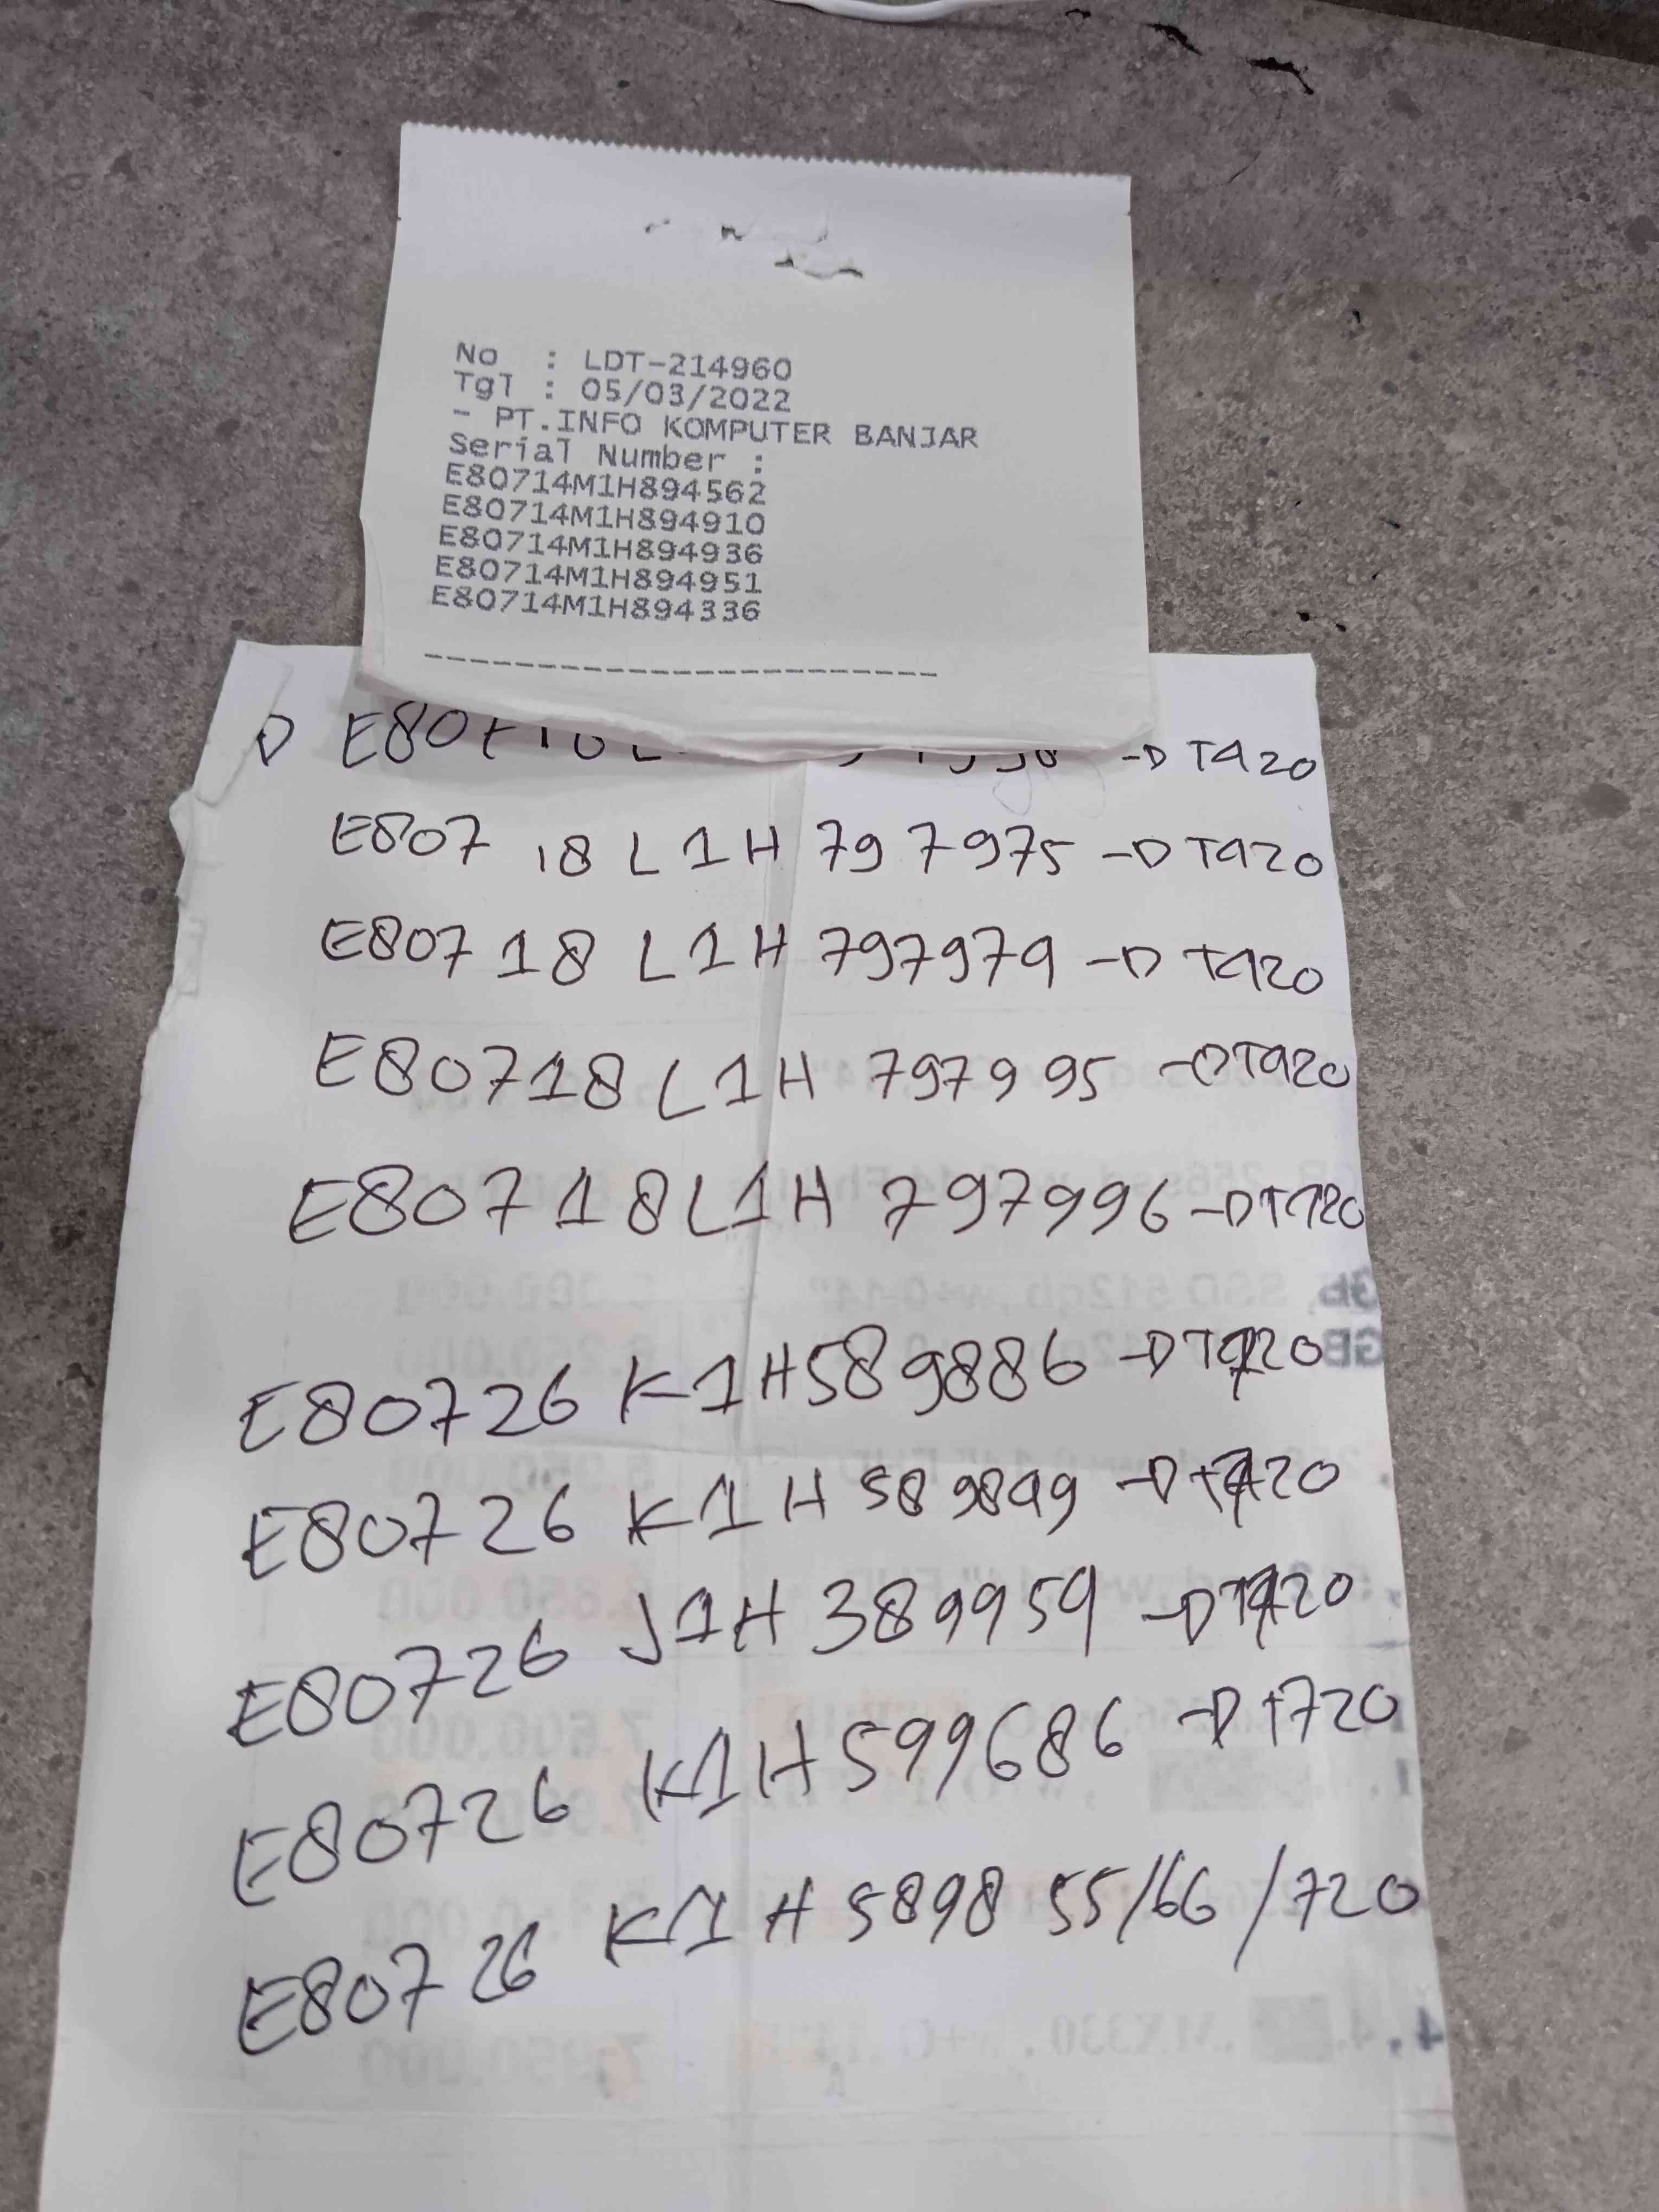 No : LDT-214960
Tgl : 05/03/2022
- PT.INFO KOMPUTER BANJAR
Serial Number :
E80714M1H894562
E80714M1H894910
E80714M1H894936
E80714M1H894951
E80714M1H894336
-----------------------
T920
E807 18 L1H 797975 -D T920
E80718 L1H 797979 -D T920
E80718 L1H 797995 -D T920
E80718L1H 797996 -D T920
E80726 K1H589886 -D T920
E80726 K1H 589849 -D T920
E80726 J1H 389959 -D T920
E80726 K1H 599686 -D T720
E80726 K1H 5898 55/66 /720